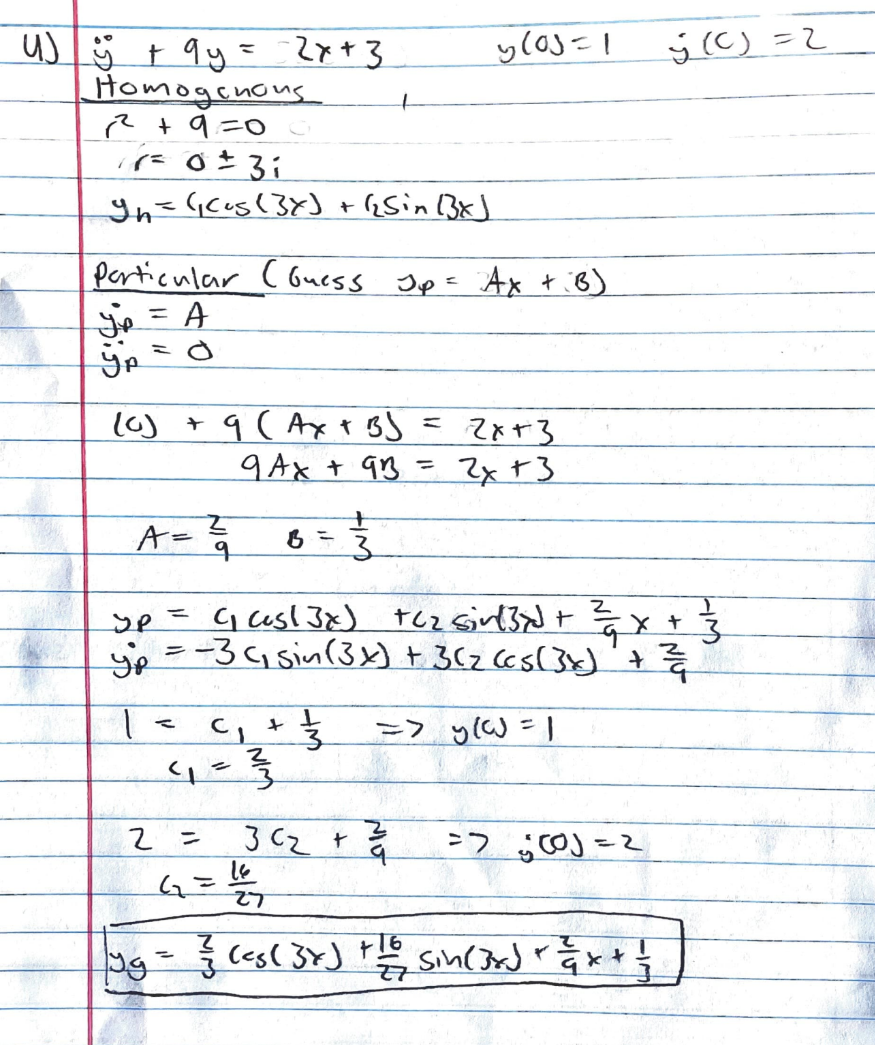 4) ÿ + 9y = 2x+3 y(0)=1 ẏ(0)=2
Homogenous
r² + 9=0
r= 0 ± 3i
yₕ= C₁cos(3x) + C₂sin(3x)
Particular (Guess yₚ = Ax + B)
ẏₚ = A
ÿₚ = 0
(0) + 9(Ax + B) = 2x+3
9Ax + 9B = 2x+3
A= 2/9 B= 1/3
yₚ = C₁cos(3x) +C₂ sin(3x)+ 2/9 x + 1/3
ẏₚ = -3C₁sin(3x) + 3C₂ cos(3x) + 2/9
1 = C₁ + 1/3 => y(0)=1
C₁ = 2/3
2 = 3C₂ + 2/9 => ẏ(0)=2
C₂ = 16/27
y_g = 2/3 cos(3x) + 16/27 sin(3x) + 2/9 x + 1/3